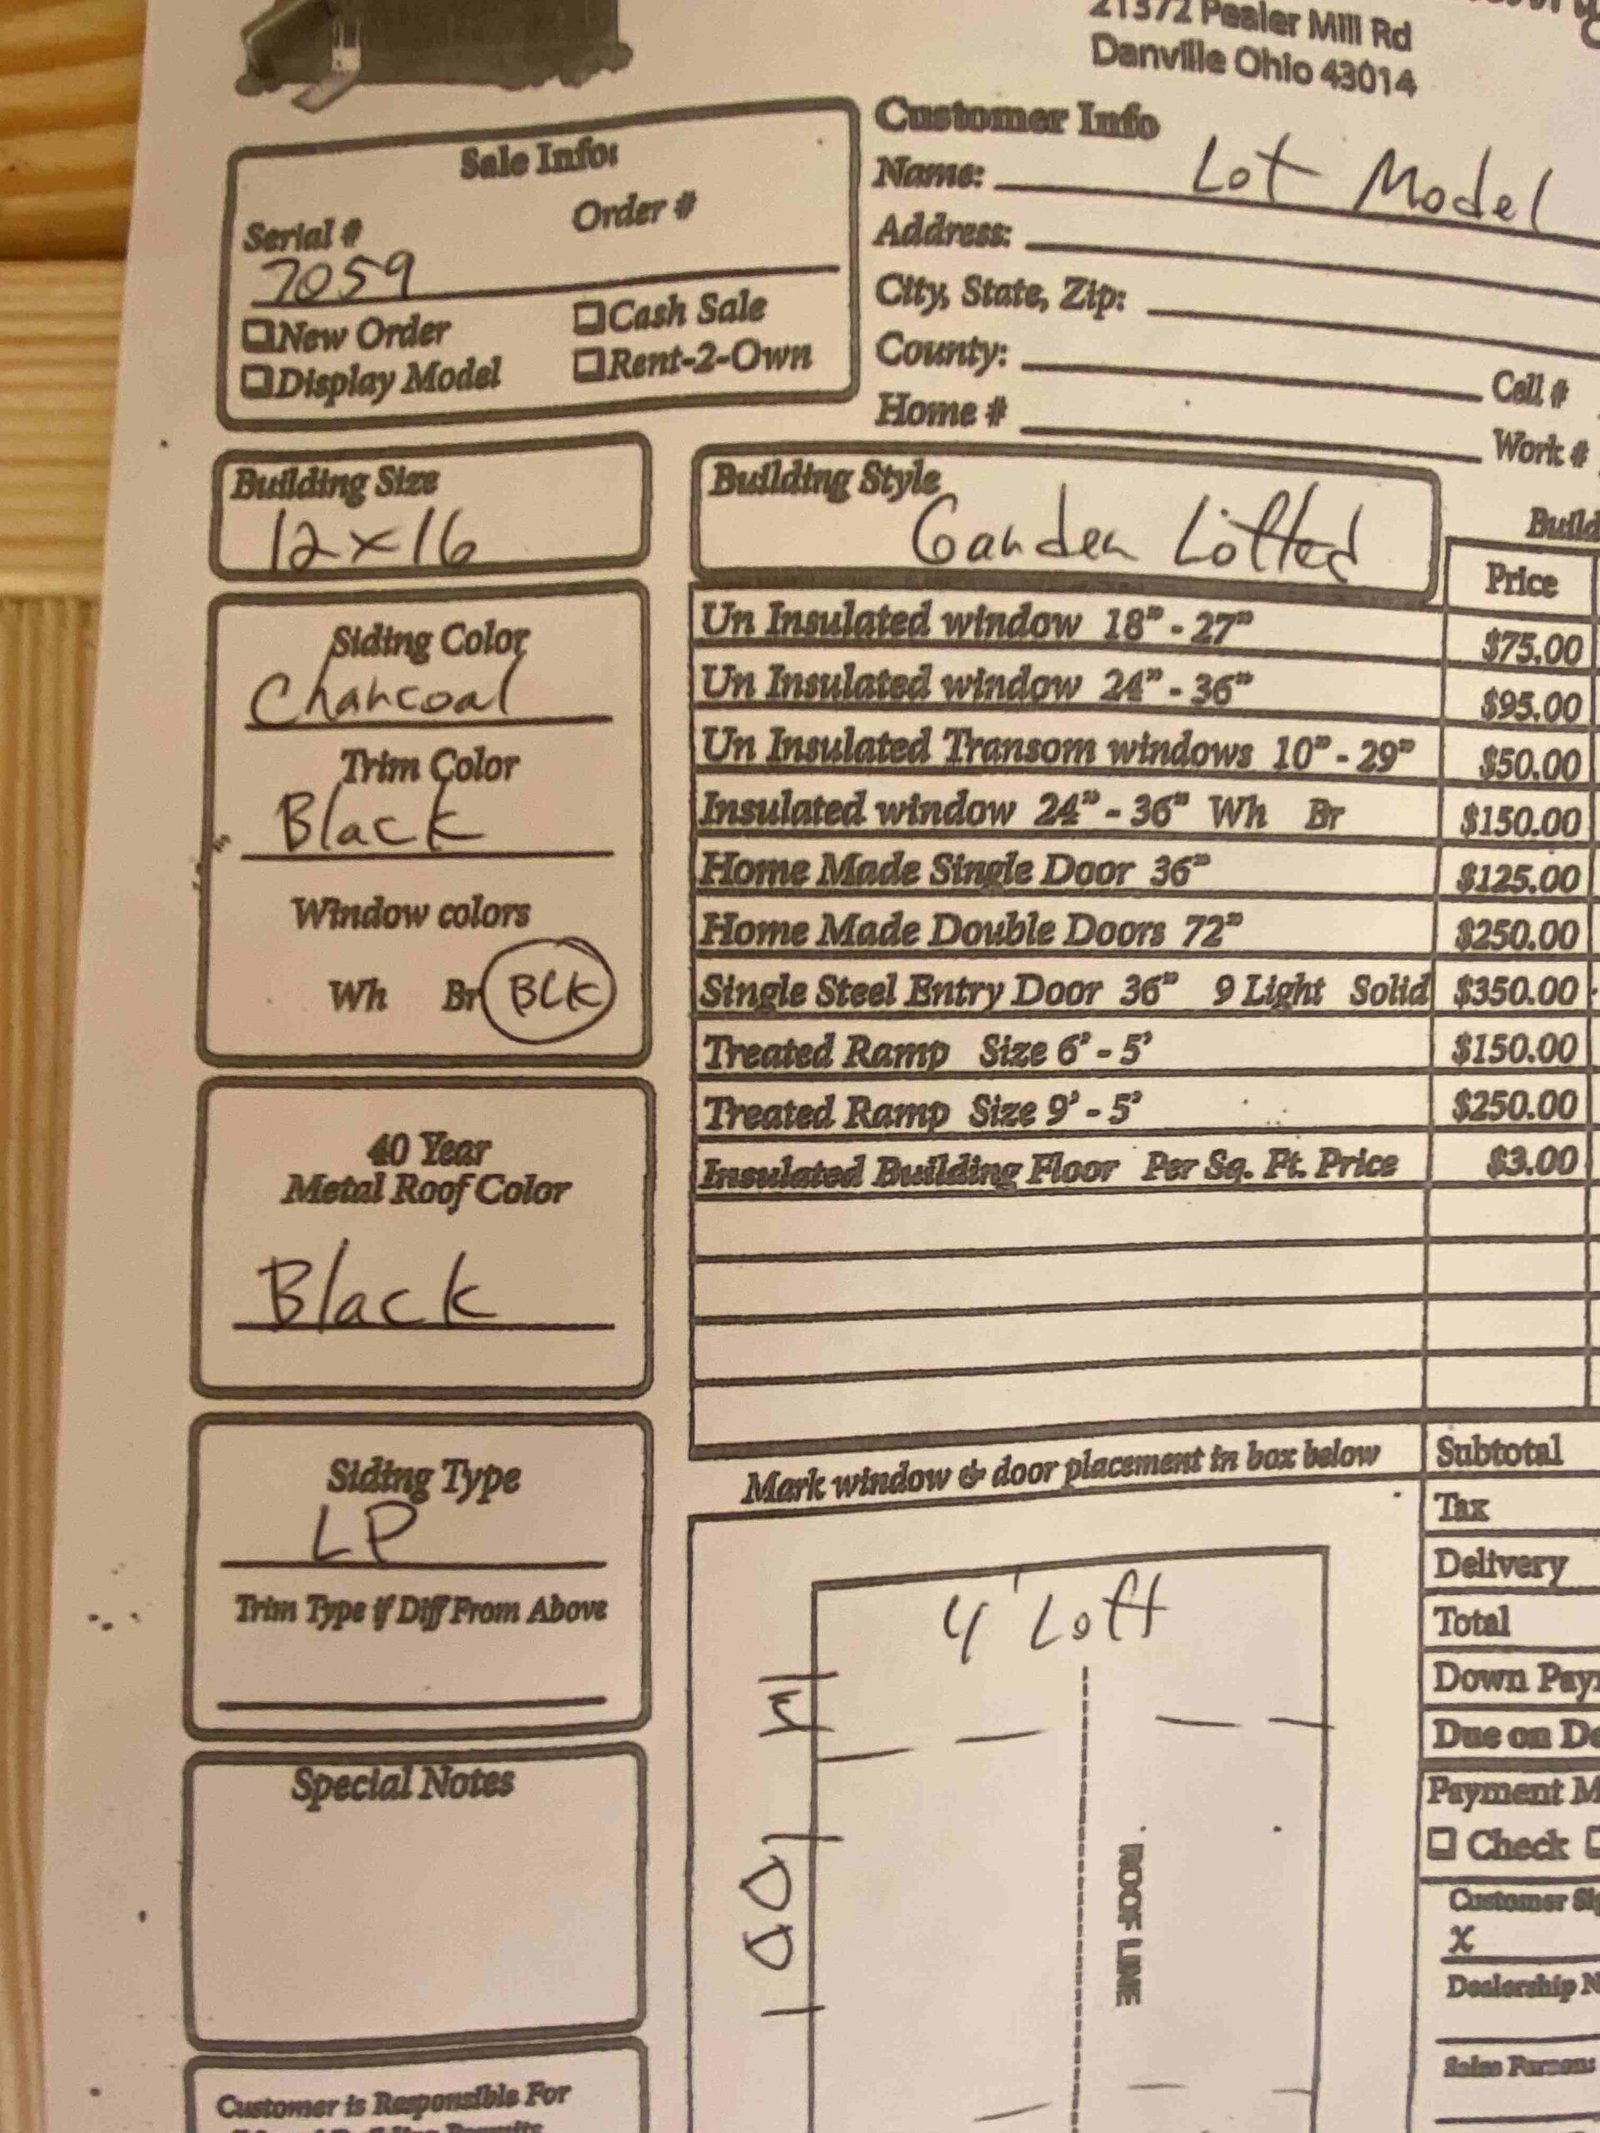 21372 Pealer Mill Rd
Danville Ohio 43014
Sale Info:
Serial #
Order #
7059
New Order
Cash Sale
Display Model
Rent-2-Own
Customer Info
Name: Lot Model
Address:
City, State, Zip:
County:
Cell #
Home #
Work #
Building Size
12x16
Building Style
Garden Lofted
Siding Color
Charcoal
Trim Color
Black
Window colors
Wh Br BLK
40 Year
Metal Roof Color
Black
Siding Type
LP
Trim Type if Diff From Above
Special Notes
Customer is Responsible For
Build
Price
Un Insulated window 18" - 27" $75.00
Un Insulated window 24" - 36" $95.00
Un Insulated Transom windows 10" - 29" $50.00
Insulated window 24" - 36" Wh Br $150.00
Home Made Single Door 36" $125.00
Home Made Double Doors 72" $250.00
Single Steel Entry Door 36" 9 Light Solid $350.00
Treated Ramp Size 6' - 5' $150.00
Treated Ramp Size 9' - 5' $250.00
Insulated Building Floor Per Sq. Ft. Price $3.00
Mark window & door placement in box below
4' Loft
W
DD
ROOF LINE
Subtotal
Tax
Delivery
Total
Down Pay
Due on De
Payment M
Check
Customer Sig
X
Dealership N
Sales Person: